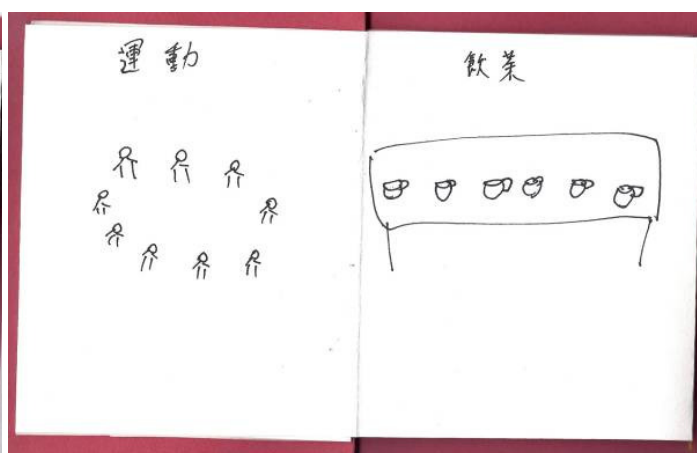 運動
飲茶